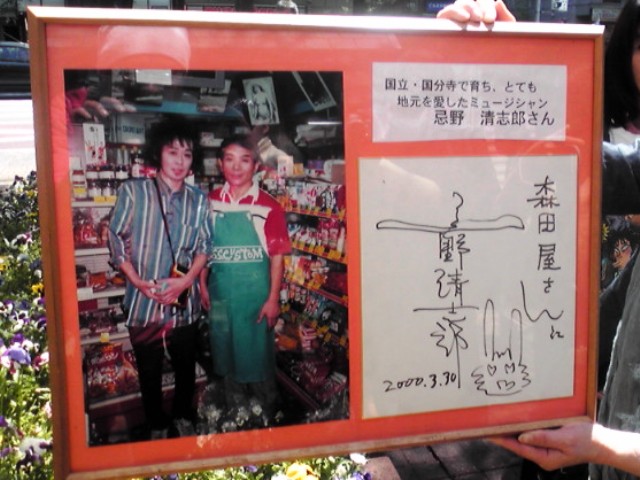 国立・国分寺で育ち、とても
地元を愛したミュージシャン
忌野 清志郎さん
森田屋さんに
忌野清志郎
2000.3.30